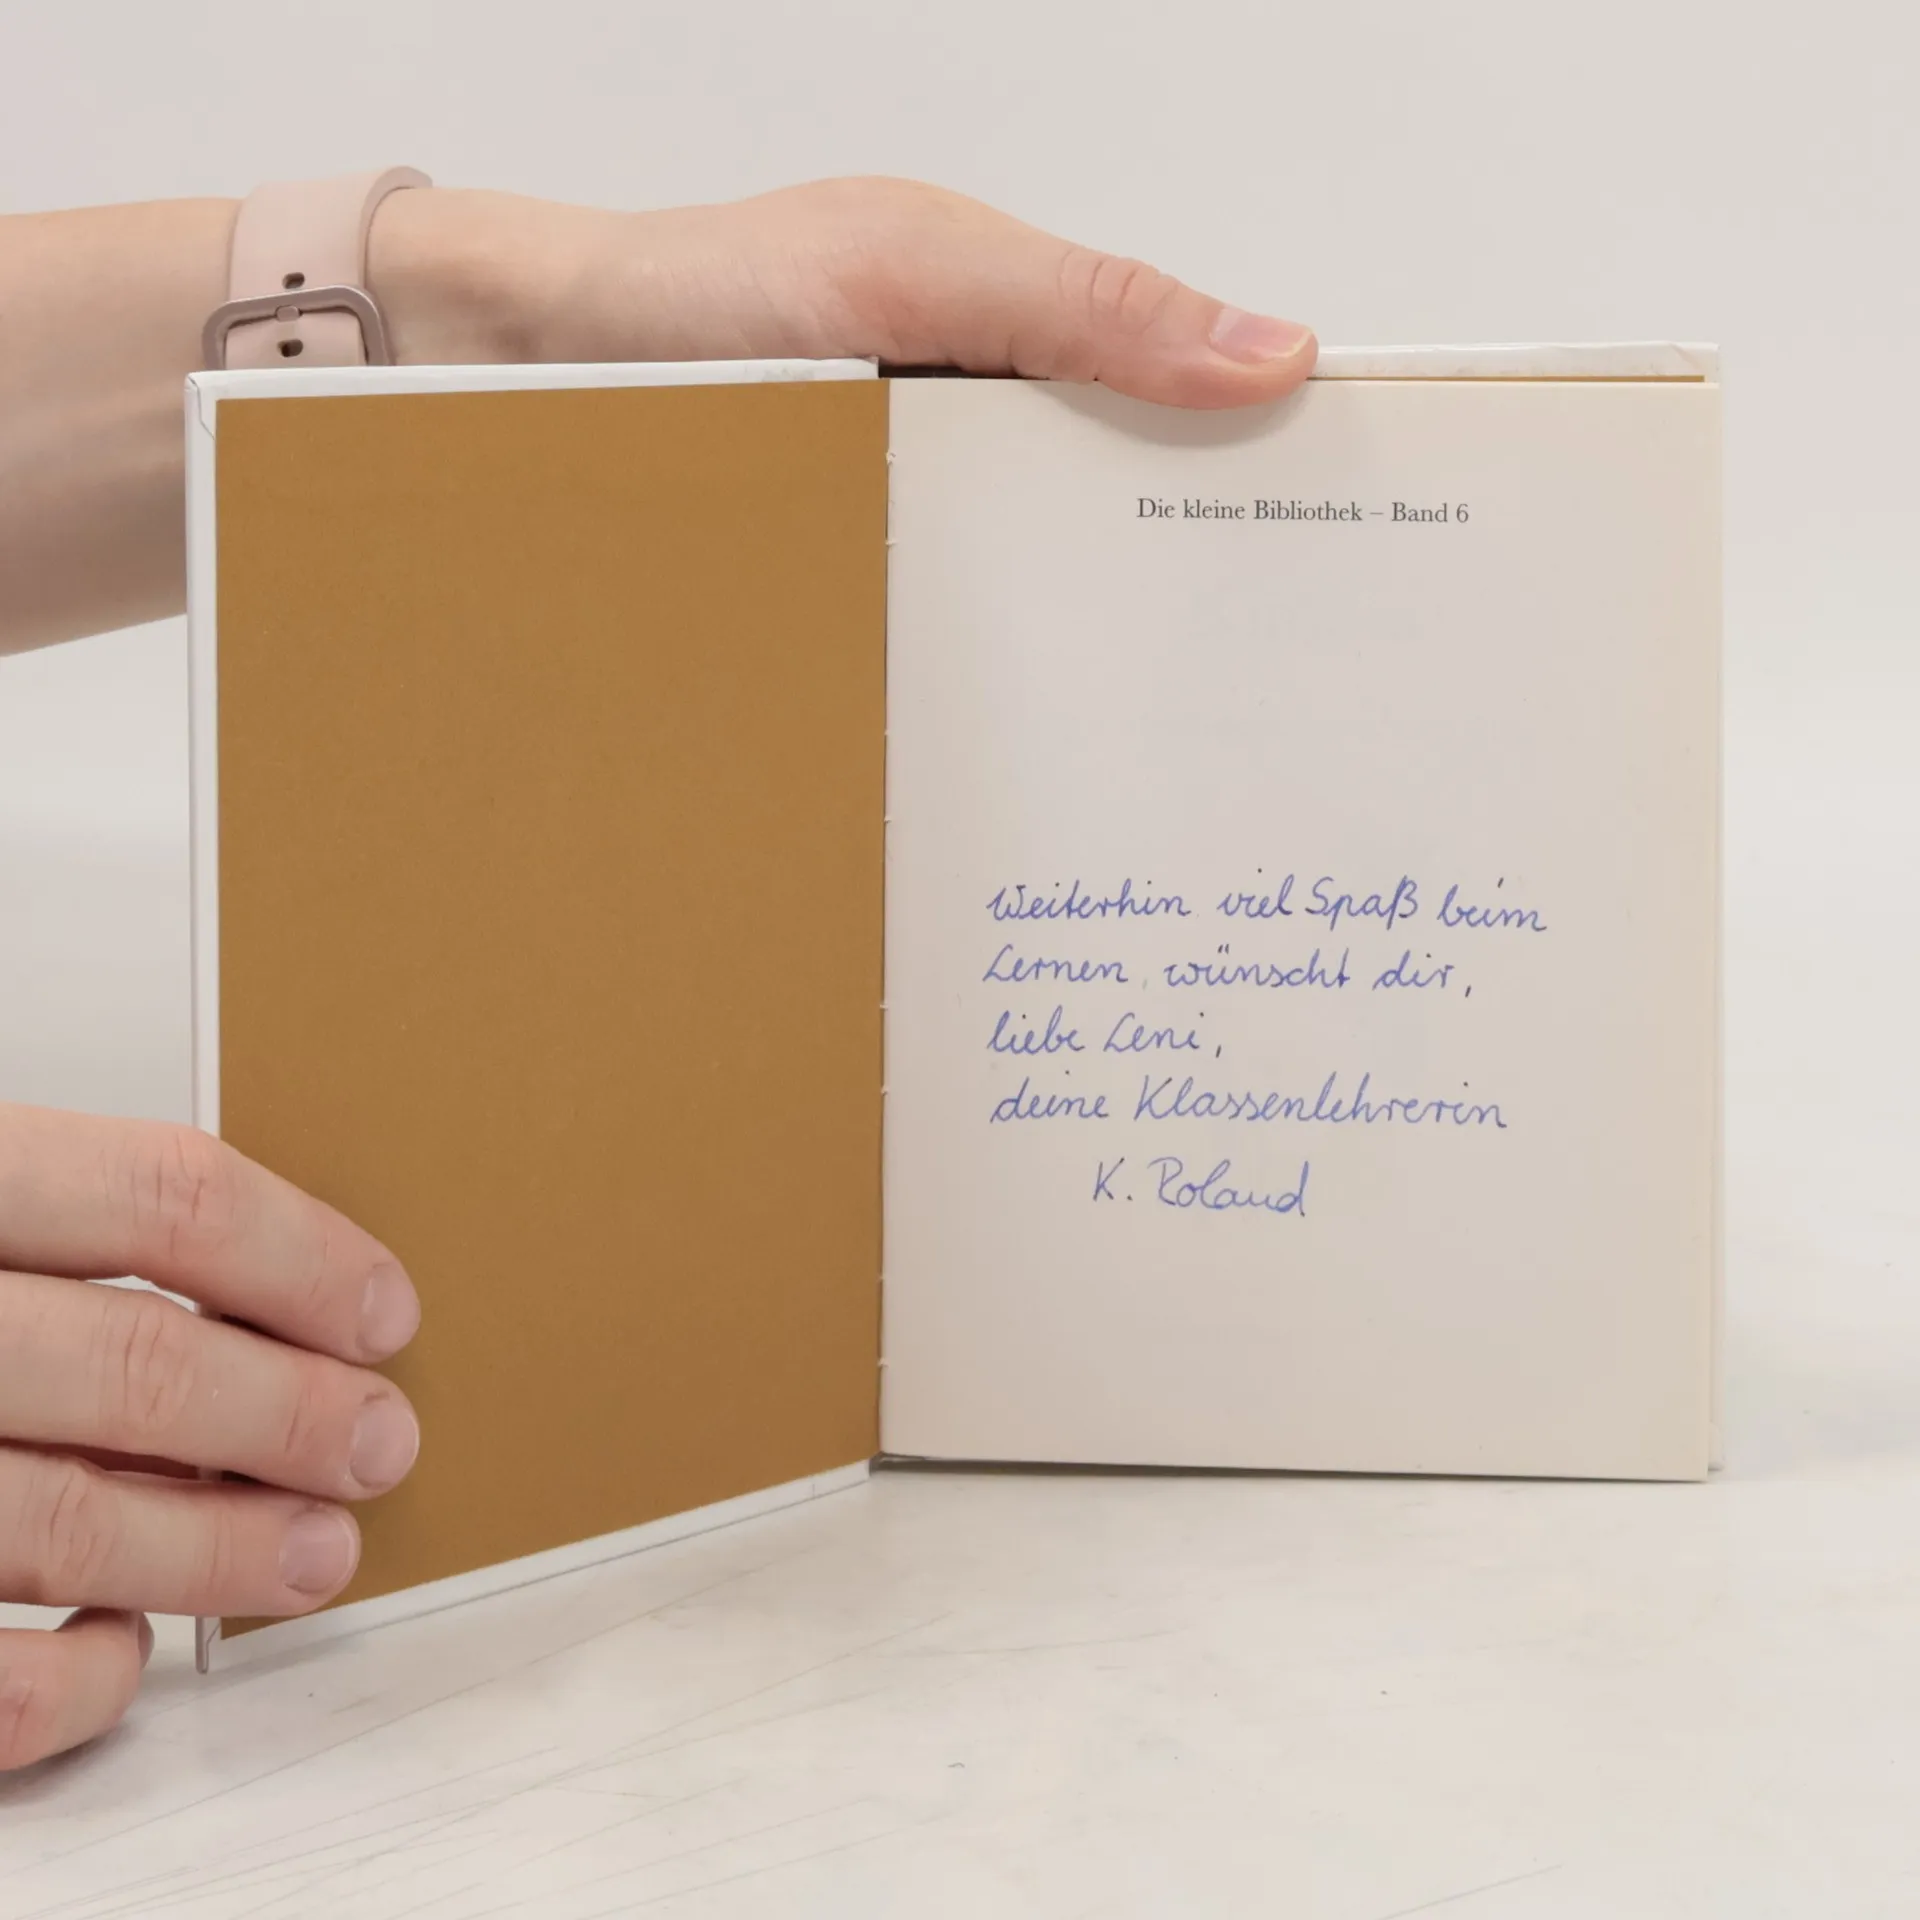 Die kleine Bibliothek – Band 6
Weiterhin viel Spaß beim
Lernen, wünscht dir,
liebe Leni,
deine Klassenlehrerin
K. Roland